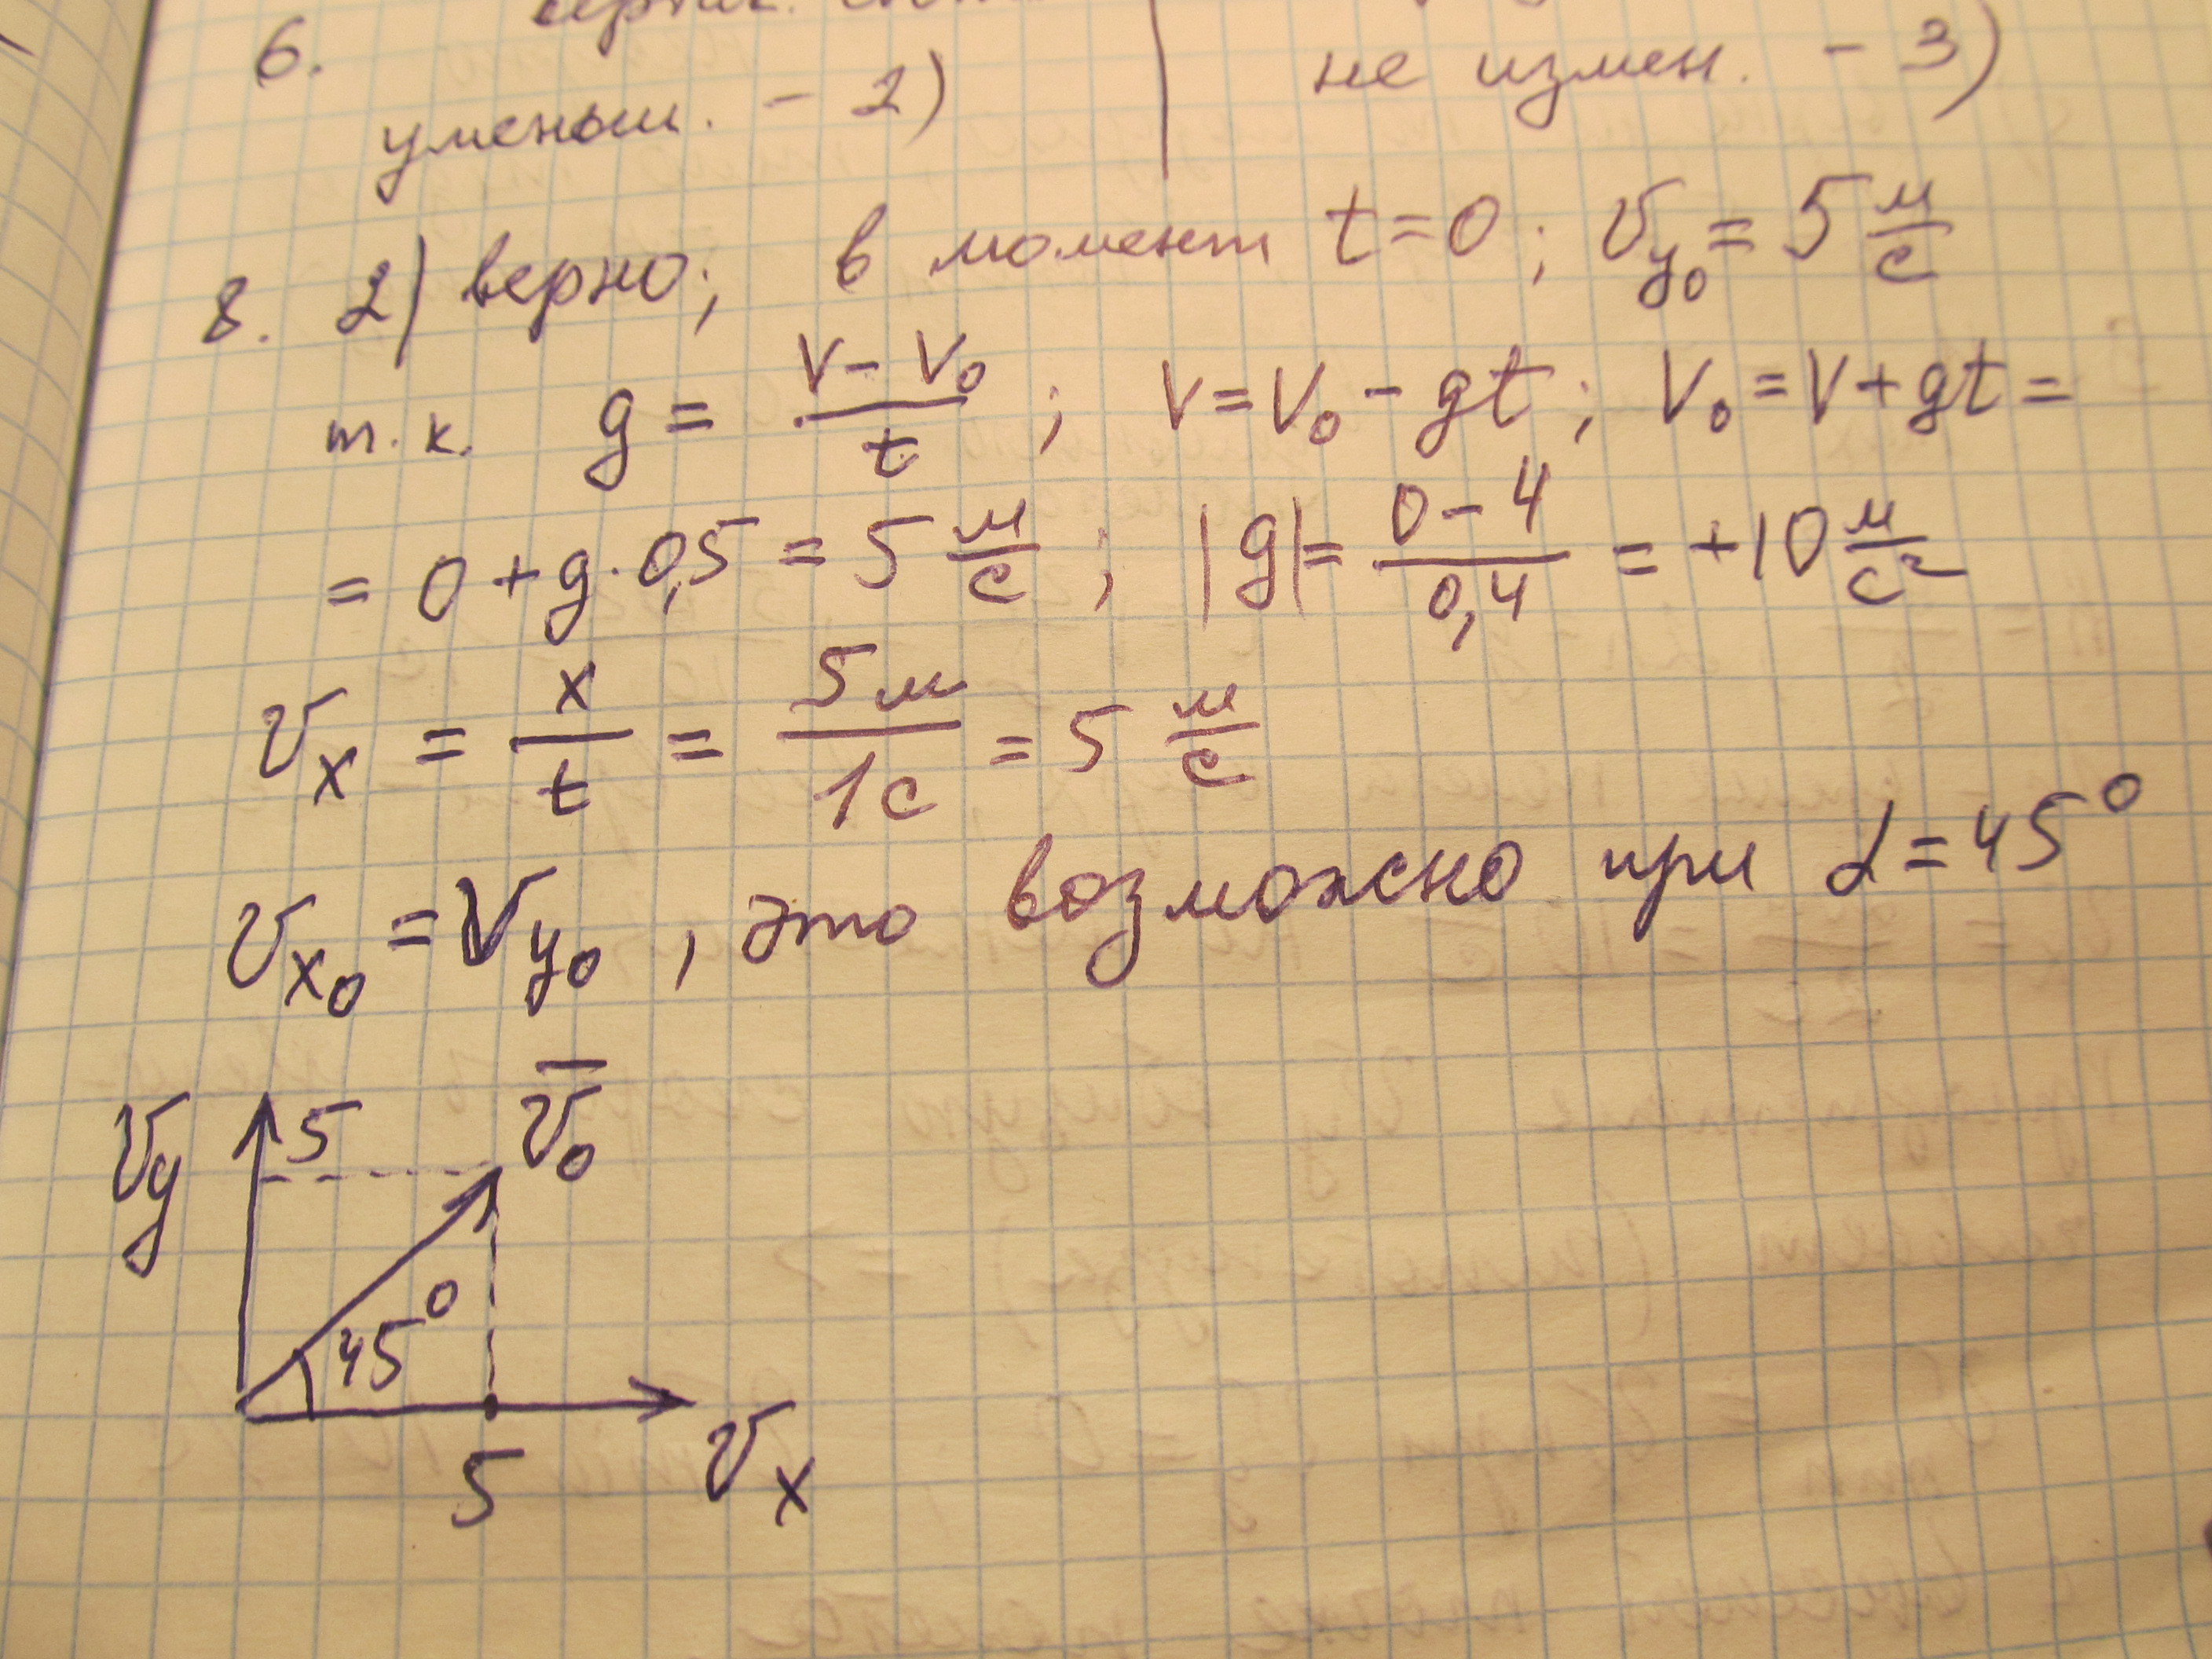 6.
уменьш. - 2)
не измен. - 3)
8. 2) верно; в момент t=0; v_y₀ = 5 м/с
т.к. g = (V - V₀)/t ; V = V₀ - gt ; V₀ = V + gt =
= 0 + g · 0,5 = 5 м/с ; |g| = (0 - 4)/0,4 = +10 м/с²
v_x = x/t = 5м/1с = 5 м/с
v_x₀ = v_y₀ , это возможно при α = 45°
v_y 5 v̅₀
45°
5 v_x